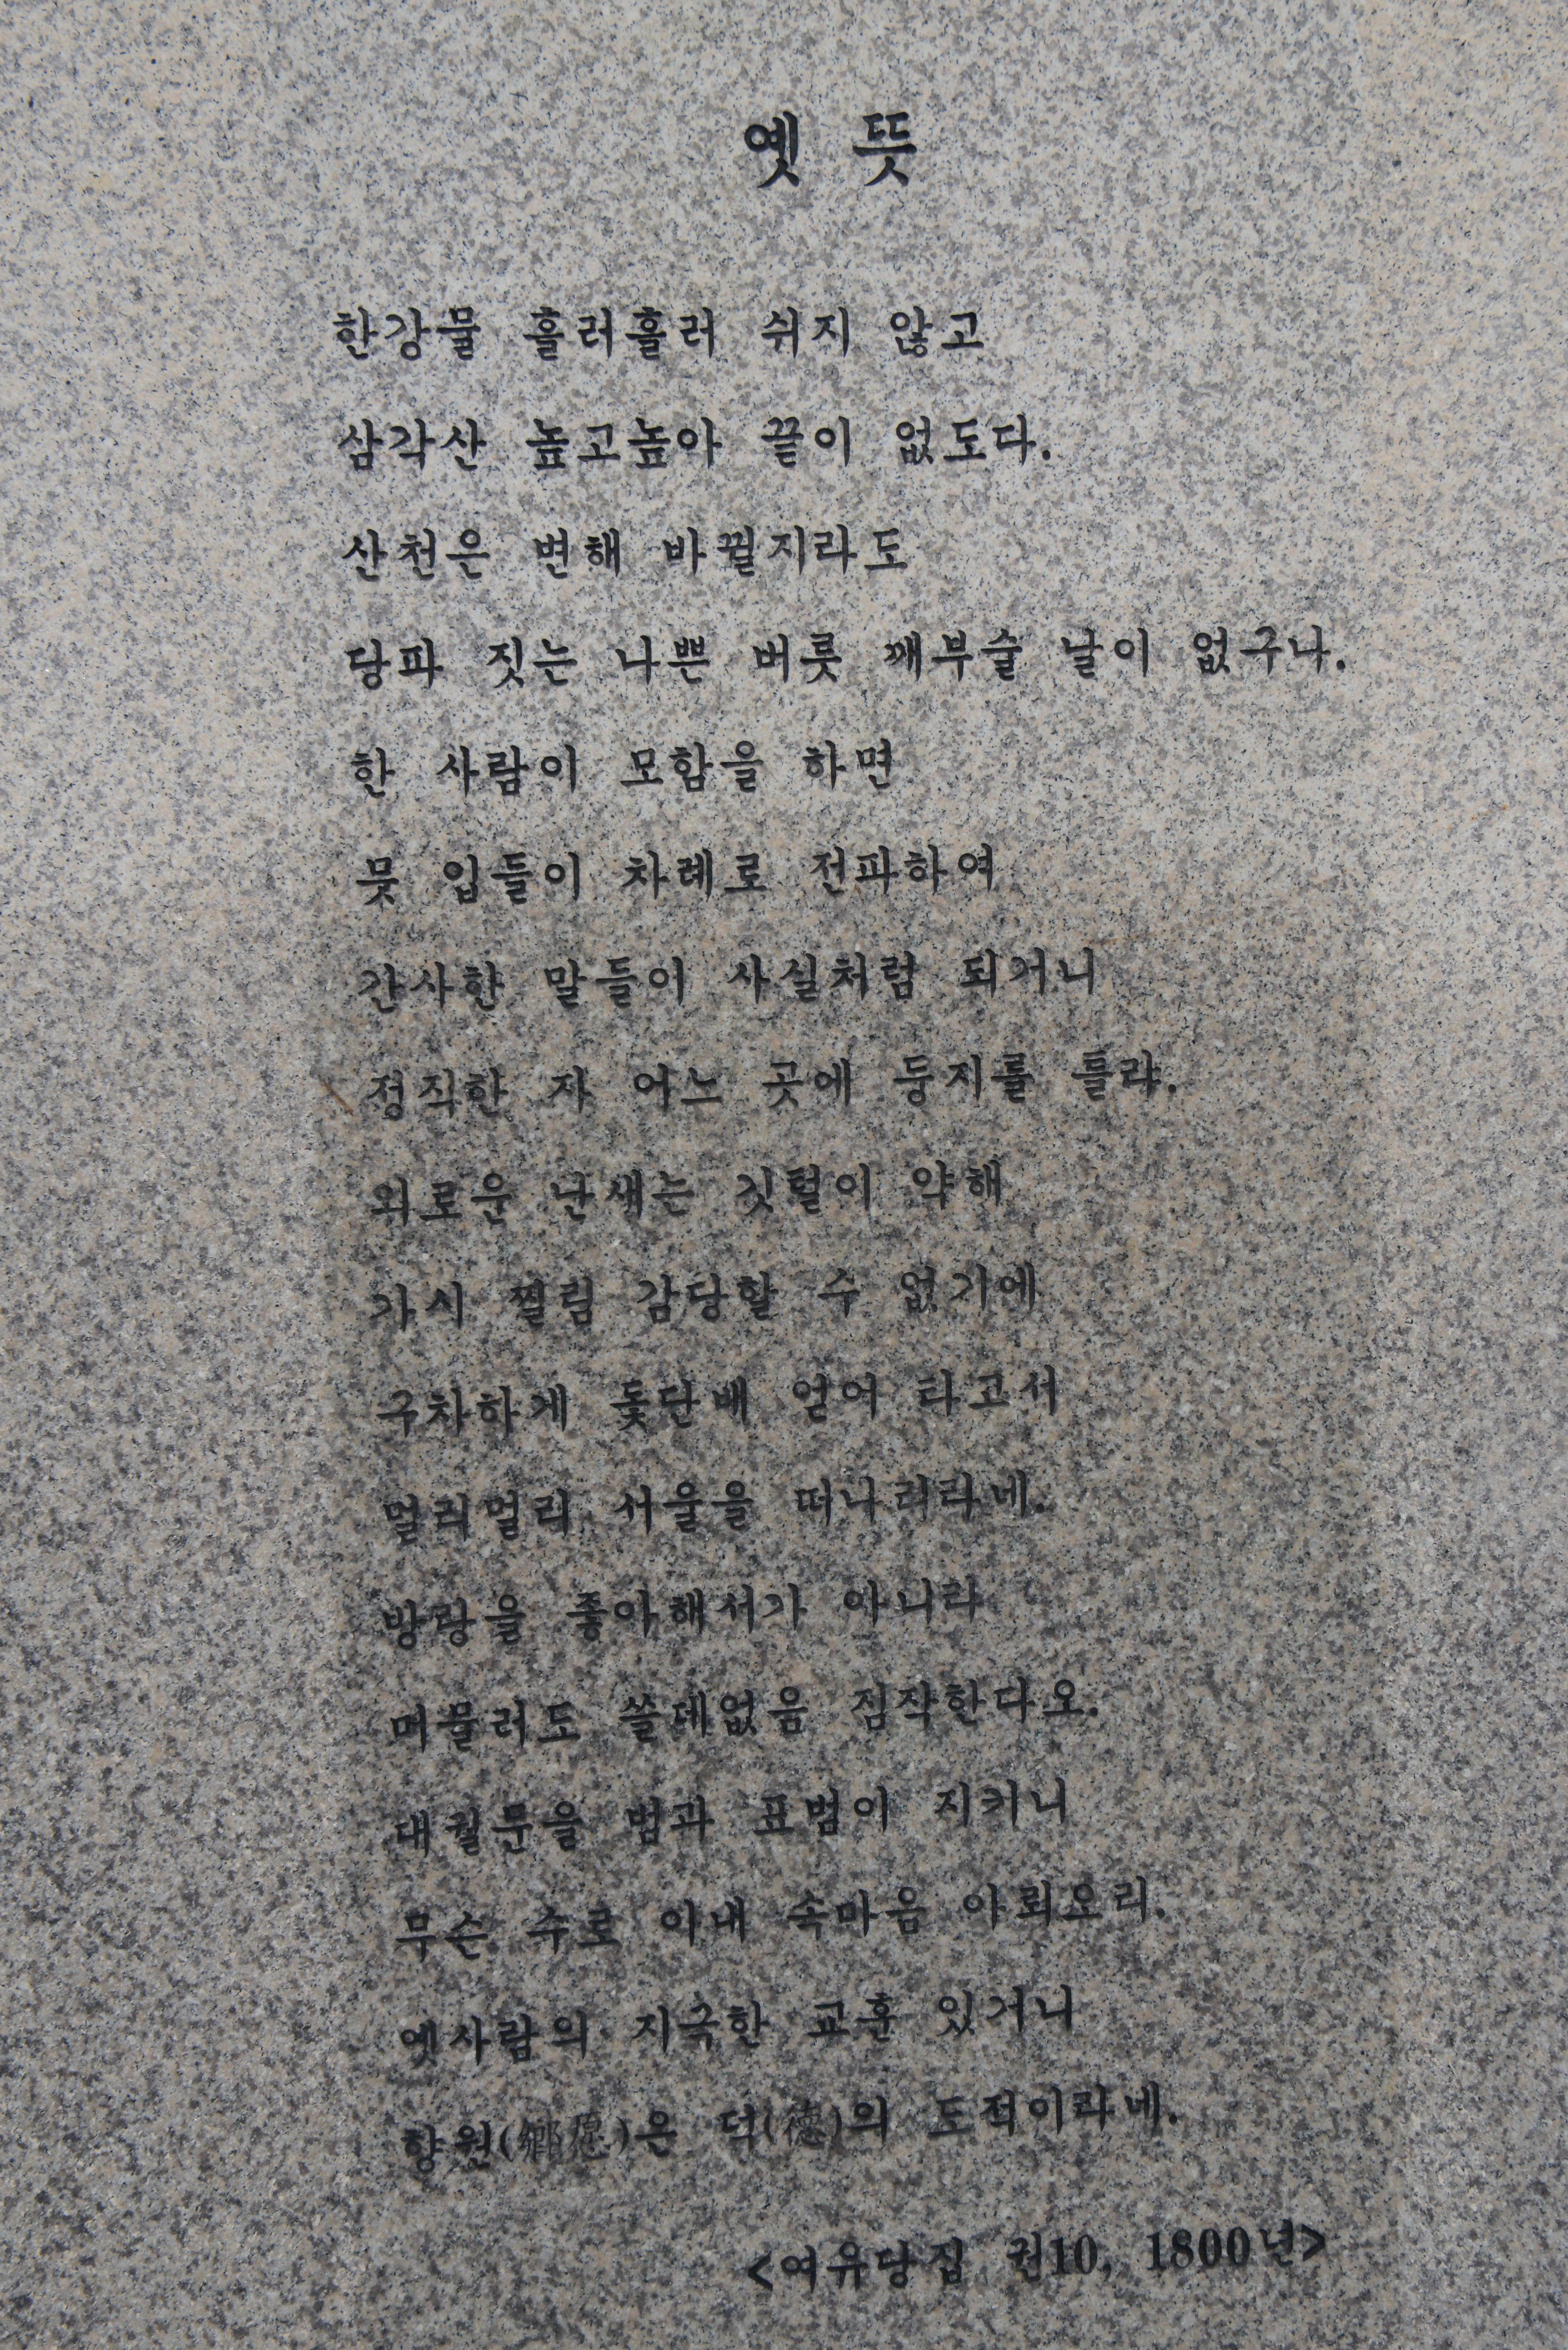 옛 뜻
한강물 흘러흘러 쉬지 않고
삼각산 높고높아 끝이 없도다.
산천은 변해 바뀔지라도
당파 짓는 나쁜 버릇 깨부술 날이 없구나.
한 사람이 모함을 하면
뭇 입들이 차례로 전파하여
간사한 말들이 사실처럼 되거니
정직한 자 어느 곳에 둥지를 틀랴.
외로운 난새는 깃털이 약해
가시 찔림 감당할 수 없기에
구차하게 돛단배 얻어 타고서
멀리멀리 서울을 떠나리라네.
방랑을 좋아해서가 아니라
머물러도 쓸데없음 짐작한다오.
대궐문을 범과 표범이 지키니
무슨 수로 이내 속마음 아뢰오리.
옛사람의 지극한 교훈 있거니
향원(鄉愿)은 덕(德)의 도적이라네.
<여유당집 권10, 1800년>